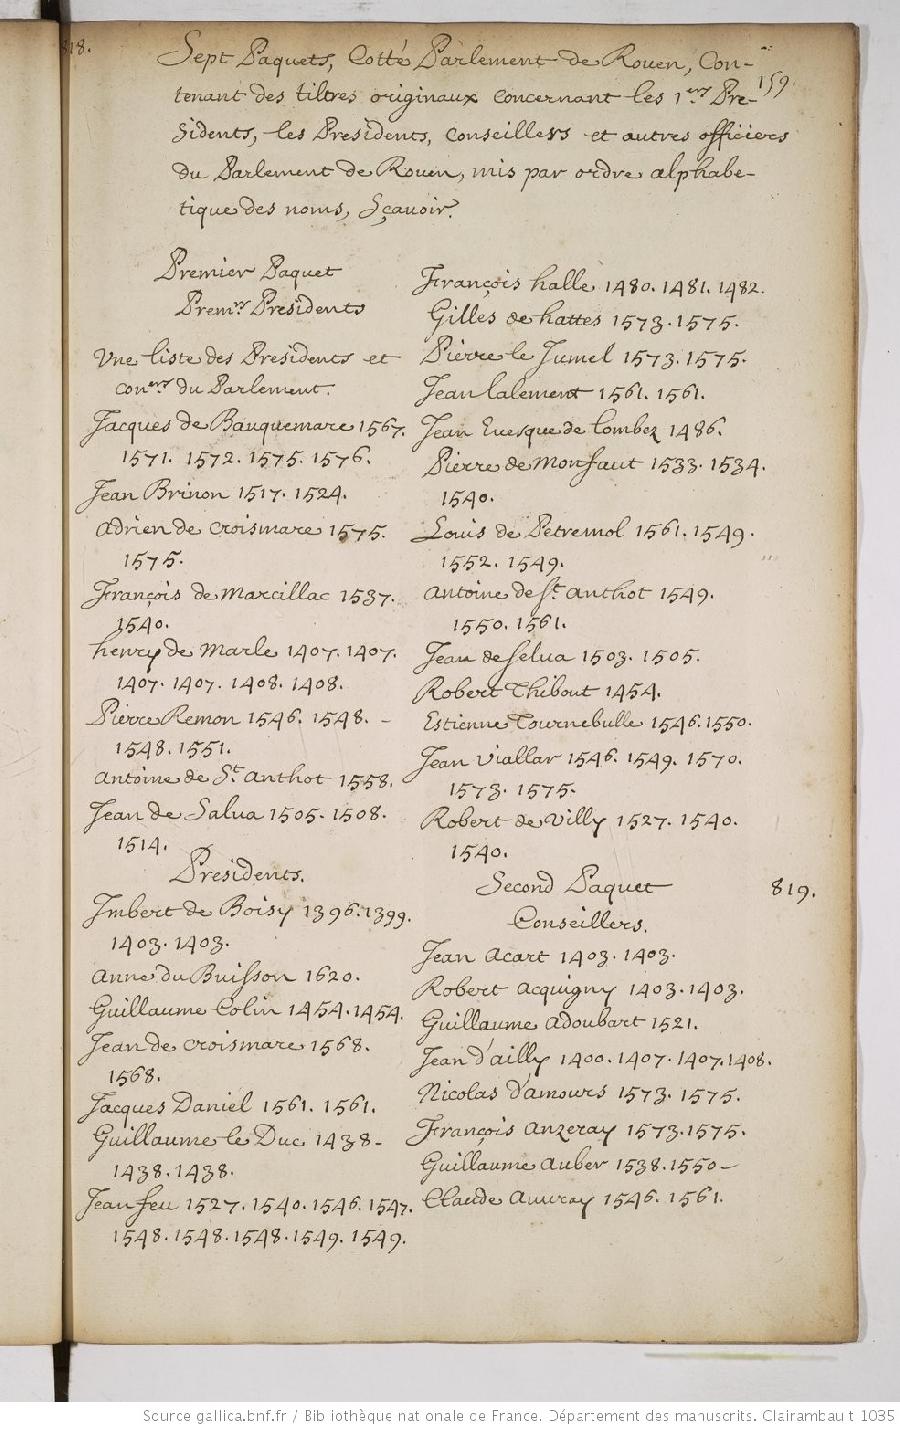 818.
159
Sept Paquets, Cotté Parlement de Rouen, Con-
tenant des tiltres originaux concernant les 1ers Pre-
sidents, les Presidents, conseillers et autres officiers
du Parlement de Rouen, mis par ordre alphabe-
tique des noms, Sçavoir.
Premier Paquet
Premrs Presidents
Une liste des Presidents et
coners du Parlement.
Jacques de Bauquemare 1567.
1571. 1572. 1575. 1576.
Jean Brinon 1517. 1524.
adrien de croismare 1575.
1575.
François de Marcillac 1537.
1540.
henry de Marle 1407. 1407.
1407. 1407. 1408. 1408.
Pierre Remon 1546. 1548. -
1548. 1551.
antoine de St. Anthot 1558.
Jean de Salua 1505. 1508.
1514.
Presidents.
Imbert de Boisy 1396. 1399.
1403. 1403.
anne du Buisson 1620.
Guillaume Colin 1454. 1454.
Jean de croismare 1568.
1568.
Jacques Daniel 1561. 1561.
Guillaume le Duc 1438-
1438. 1438.
Jean feu 1527. 1540. 1546. 1547.
1548. 1548. 1548. 1549. 1549.
François hallé 1480. 1481. 1482.
Gilles de hattes 1573. 1575.
Pierre le Jumel 1573. 1575.
Jean lalement 1561. 1561.
Jean Euesque de Lombez 1486.
Pierre de Monfaut 1533. 1534.
1540.
Louis de Petremol 1561. 1549.
1552. 1549.
antoine de St. anthot 1549.
1550. 1561.
Jean de selua 1503. 1505.
Robert Thibout 1454.
Estienne Tournebulle 1546. 1550.
Jean Viallar 1546. 1549. 1570.
1573. 1575.
Robert de Villy 1527. 1540.
1540.
Second Paquet
819.
Conseillers.
Jean Acart 1403. 1403.
Robert acquigny 1403. 1403.
Guillaume adoubart 1521.
Jean d'ailly 1400. 1407. 1407. 1408.
Nicolas d'amours 1573. 1575.
François anzeray 1573. 1575.
Guillaume auber 1538. 1550-
Claude auuray 1546. 1561.
Source gallica.bnf.fr / Bibliothèque nationale de France. Département des manuscrits. Clairambault 1035